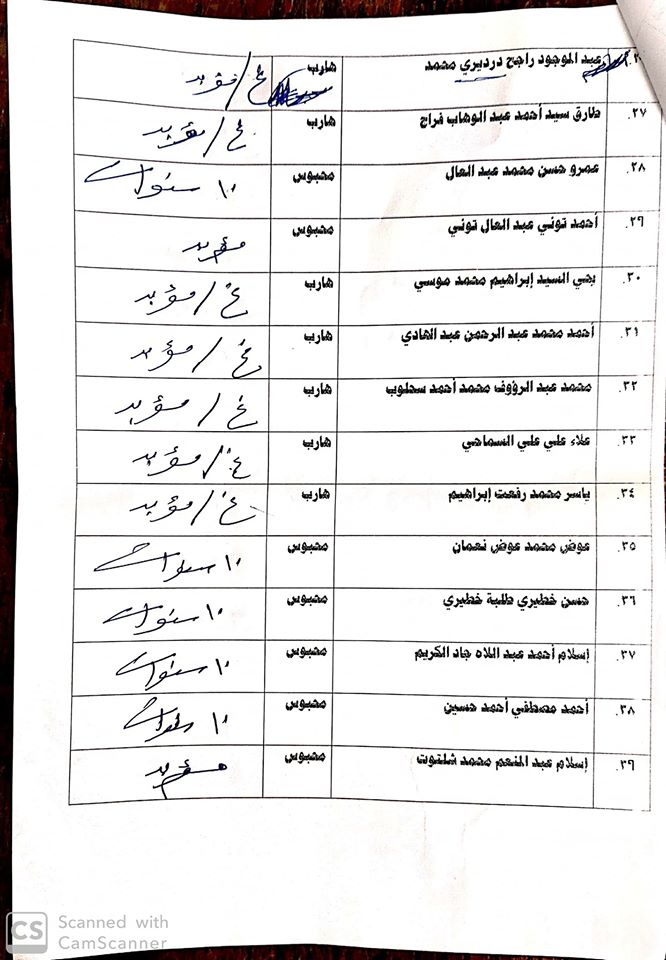 عبد الموجود راجح درديري محمد هارب غ/مؤبد
٢٧. طارق سيد أحمد عبد الوهاب فراج هارب غ/مؤبد
٢٨. عمرو حسن محمد عبد العال محبوس ١٠ سنوات
٢٩. أحمد توني عبد العال توني محبوس مؤبد
٣٠. يحي السيد إبراهيم محمد موسي هارب غ/مؤبد
٣١. أحمد محمد عبد الرحمن عبد الهادي هارب غ/مؤبد
٣٢. محمد عبد الرؤوف محمد أحمد سحلوب هارب غ/مؤبد
٣٣. علاء علي علي السماحي هارب غ/مؤبد
٣٤. ياسر محمد رفعت إبراهيم هارب غ/مؤبد
٣٥. عوض محمد عوض نعمان محبوس ١٠ سنوات
٣٦. حسن خطيري طلبة خطيري محبوس ١٠ سنوات
٣٧. إسلام أحمد عبد اللاه جاد الكريم محبوس ١٠ سنوات
٣٨. أحمد مصطفي أحمد حسين محبوس ١٠ سنوات
٣٩. إسلام عبد المنعم محمد شلتوت محبوس مؤبد
CS Scanned with
CamScanner